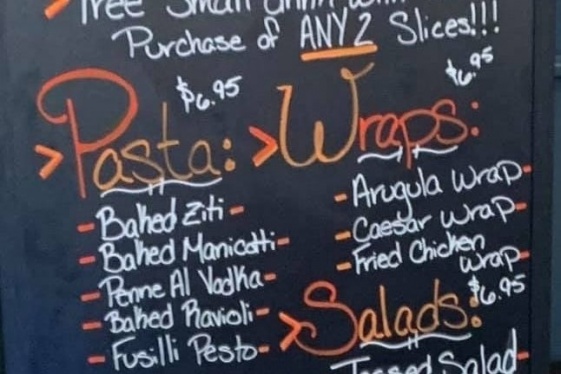 Free Small drink with
Purchase of ANY 2 Slices!!!
$6.95
>Pasta:
-Baked Ziti-
-Baked Manicotti-
-Penne Al Vodka-
-Baked Ravioli-
-Fusilli Pesto-
$6.95
>Wraps:
-Arugula Wrap-
-Caesar Wrap-
-Fried Chicken
Wrap-
$6.95
>Salads:
Tossed Salad-